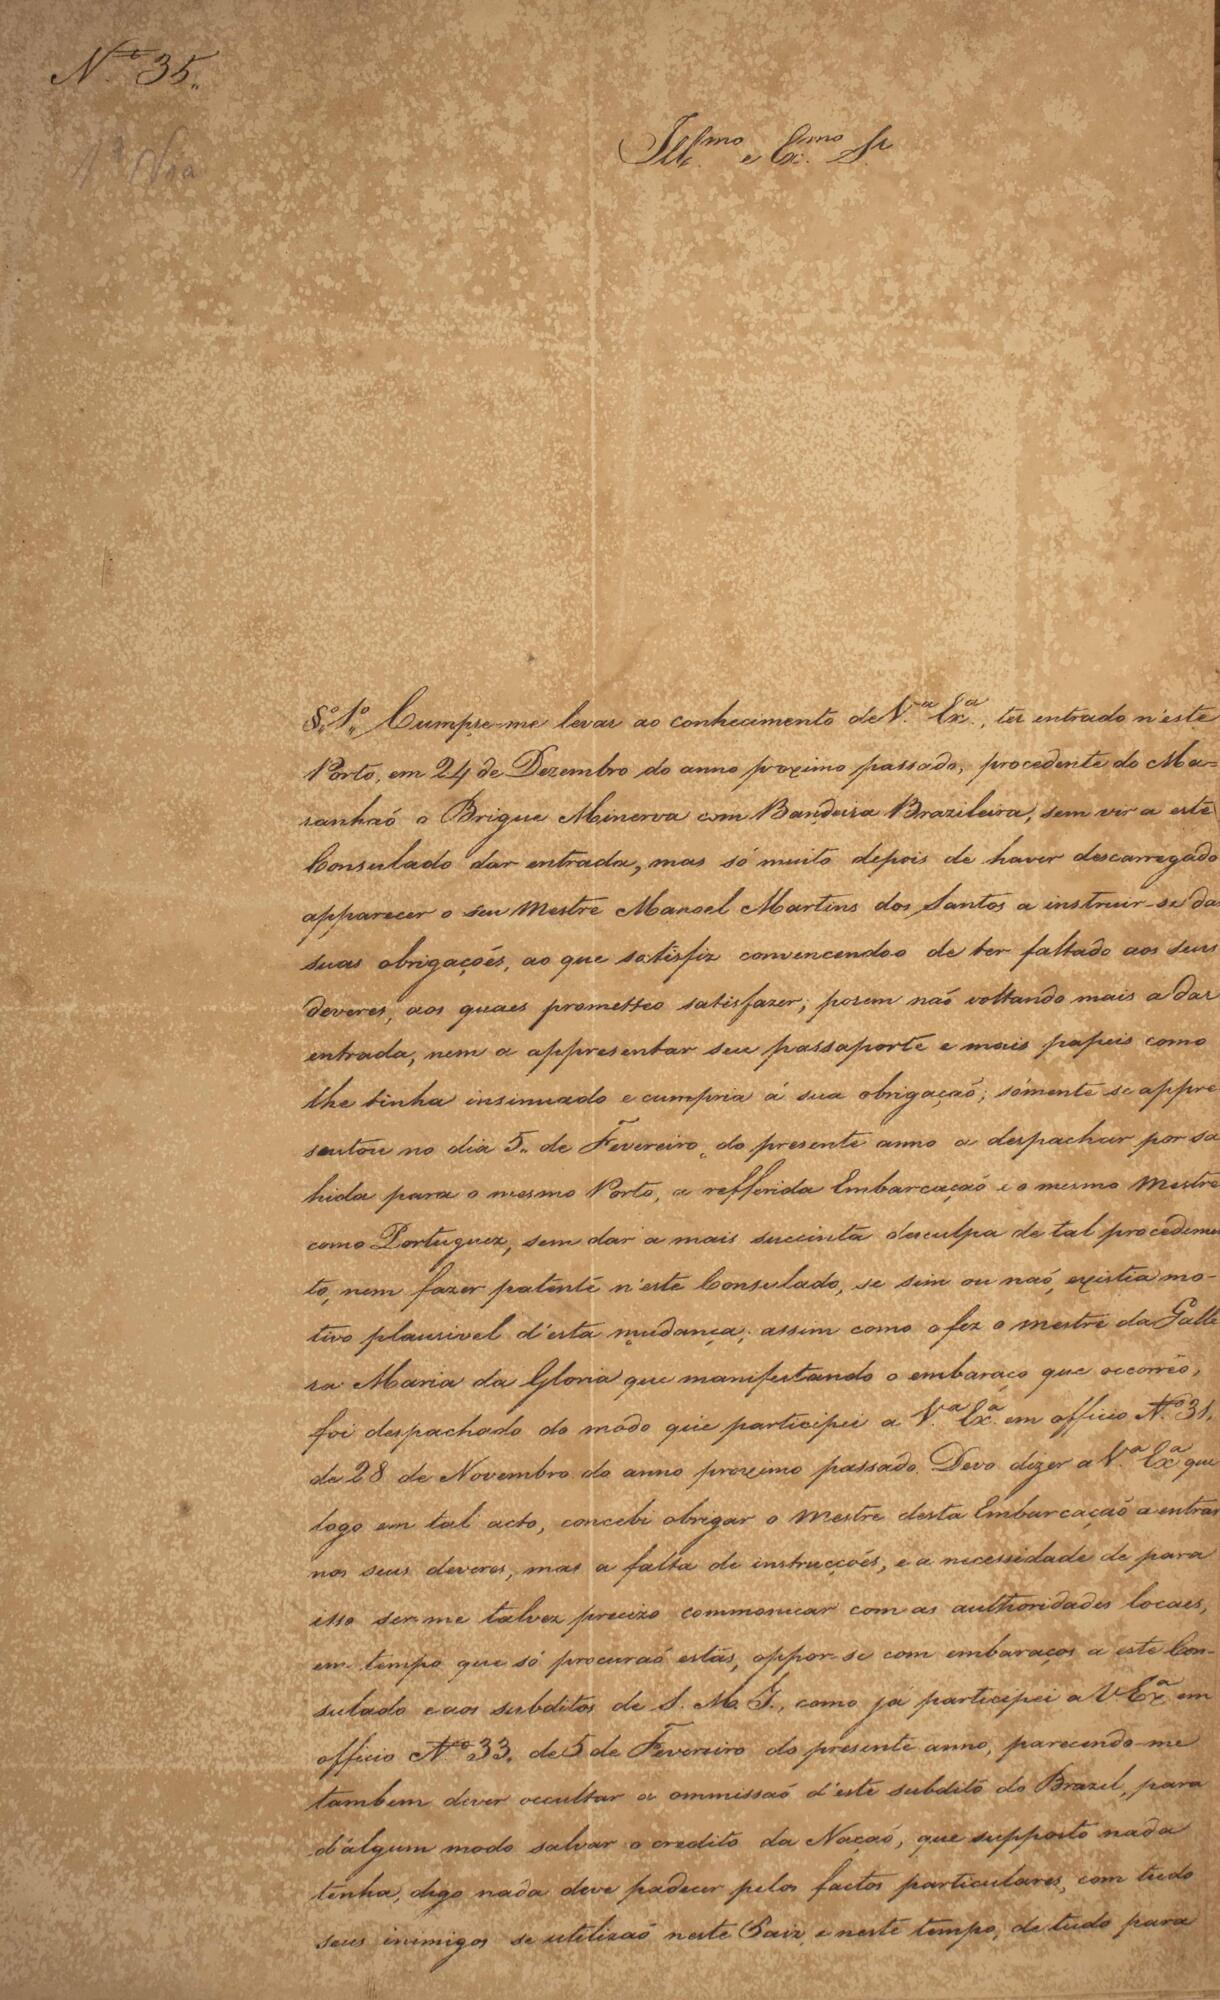 N.º 35.
Ill.mo e Ex.mo Sr
§.º 1.º Cumpre-me levar ao conhecimento de V.ª Ex.ª, ter entrado n'este
Porto, em 24 de Dezembro do anno proximo passado, procedente do Ma-
ranhaõ o Brigue Minerva com Bandeira Brazileira, sem vir a este
Consulado dar entrada, mas só muito depois de haver descarregado
apparecer o seu Mestre Manoel Martins dos Santos a instruir-se da
suas obrigaçoẽs, ao que satisfiz convencendo-o de ter faltado aos seus
deveres, aos quaes prometteo satisfazer; porem naõ voltando mais a dar
entrada, nem a appresentar seu passaporte e mais papeis como
lhe tinha insinuado e cumpria á sua obrigaçaõ; sómente se appre
sentou no dia 5 de Fevereiro do presente anno a despachar por sa
hida para o mesmo Porto, a refferida Embarcaçaõ e o mesmo Mestre
como Portuguez, sem dar a mais succinta desculpa de tal procedimen
to, nem fazer patente n'este Consulado, se sim ou naõ, existia mo-
tivo plausivel d'esta mudança; assim como o fez o mestre da Galle
ra Maria da Gloria que manifestando o embaraço que occorrêo,
foi despachado do módo que participei a V.ª Ex.ª em officio N.º 31,
de 28 de Novembro do anno proximo passado. Devo dizer a V.ª Ex.ª que
logo em tal acto, concebi obrigar o Mestre desta Embarcaçaõ a entrar
nos seus deveres, mas a falta de instrucçoẽs, e a necessidade de para
isso ser-me talvez precizo communicar com as authoridades locaes,
em tempo que só procuraõ estas, oppor-se com embaraços a este Con-
sulado e aos subditos de S. M. I., como já participei a V Ex.ª em
officio N.º 33, de 5 de Fevereiro do presente anno, parecendo-me
tambem dever occultar a ommissaõ d'este subdito do Brazil, para
d'algum modo salvar o credito da Naçaõ, que supposto nada
tenha, digo nada deve padecer pelos factos particulares, com tudo
seus inimigos se utilizaõ neste Paiz, e neste tempo, de tudo para